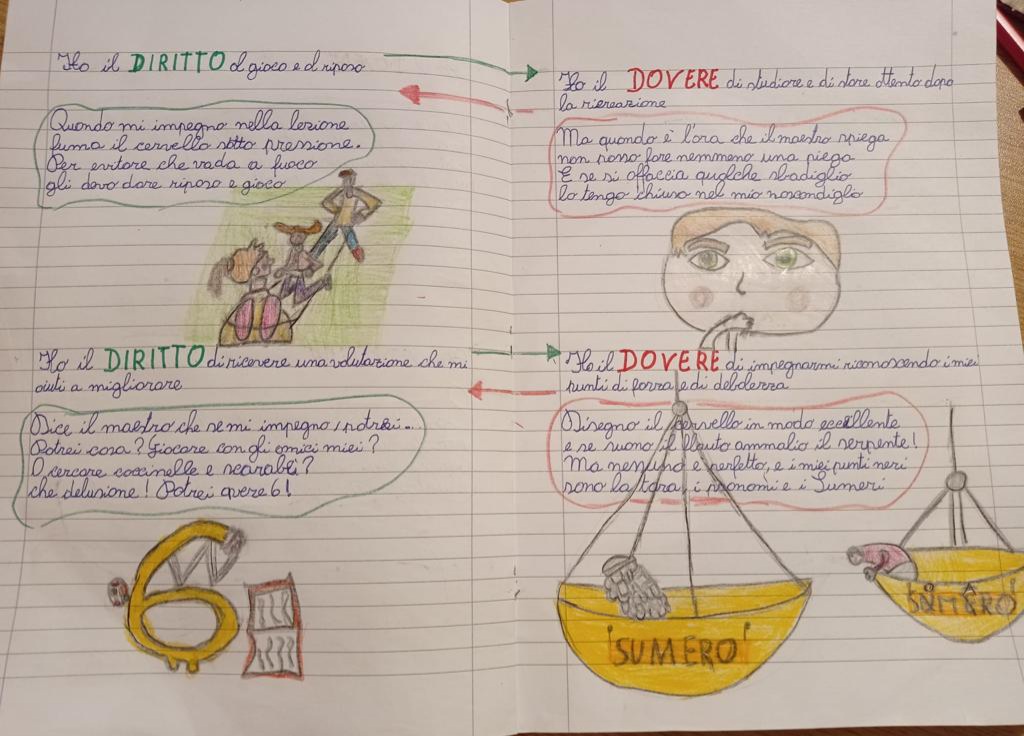 Ho il DIRITTO al gioco e al riposo
Quando mi impegno nella lezione
fuma il cervello sotto pressione.
Per evitare che vada a fuoco
gli devo dare riposo e gioco
Ho il DIRITTO di ricevere una valutazione che mi
aiuti a migliorare
Dice il maestro che se mi impegno, potrei...
Potrei cosa? Giocare con gli amici miei?
O cercare coccinelle e scarabei?
che delusione! Potrei avere 6!
Ho il DOVERE di studiare e di stare attento dopo
la ricreazione
Ma quando è l'ora che il maestro spiega
non posso fare nemmeno una piega
E se si affaccia qualche sbadiglio
lo tengo chiuso nel mio nascondiglio
Ho il DOVERE di impegnarmi riconoscendo i miei
punti di forza e di debolezza
Disegno il cervello in modo eccellente
e se suono il flauto ammalio il serpente!
Ma nessuno è perfetto, e i miei punti neri
sono la tara, i pronomi e i Sumeri
6
SUMERO